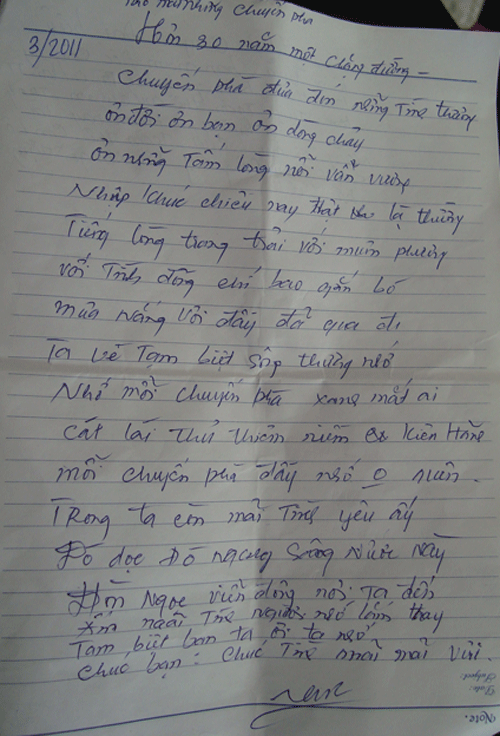 Nhớ những chuyến phà
3/2011
Hơn 30 năm một chặng đường -
Chuyến phà đưa đón nặng tình thương
Ơn đời ơn bạn ơn dòng chảy
Ơn những tấm lòng nỗi vấn vương
Nhịp khúc chiều nay thật lạ thường
Tiếng lòng trang trải với muôn phương
Với tình đồng chí bao gắn bó
Mưa nắng với đây đã qua đi
Ta về tạm biệt sông thương nhớ
Nhớ mỗi chuyến phà xang mắt ai
Cát lái thủ thiêm niềm Kiên
Mỗi chuyến phà đầy nhớ
Trong ta còn mãi tình yêu ấy
Đò dọc đò ngang sông nước này
Hòn Ngọc viễn đông nơi ta đến
Tình người nhớ lắm thay
Tạm biệt bạn ta ơi ta nhớ
Chúc bạn: chúc tình mãi mãi vui.
Date:
Subject:
Note.